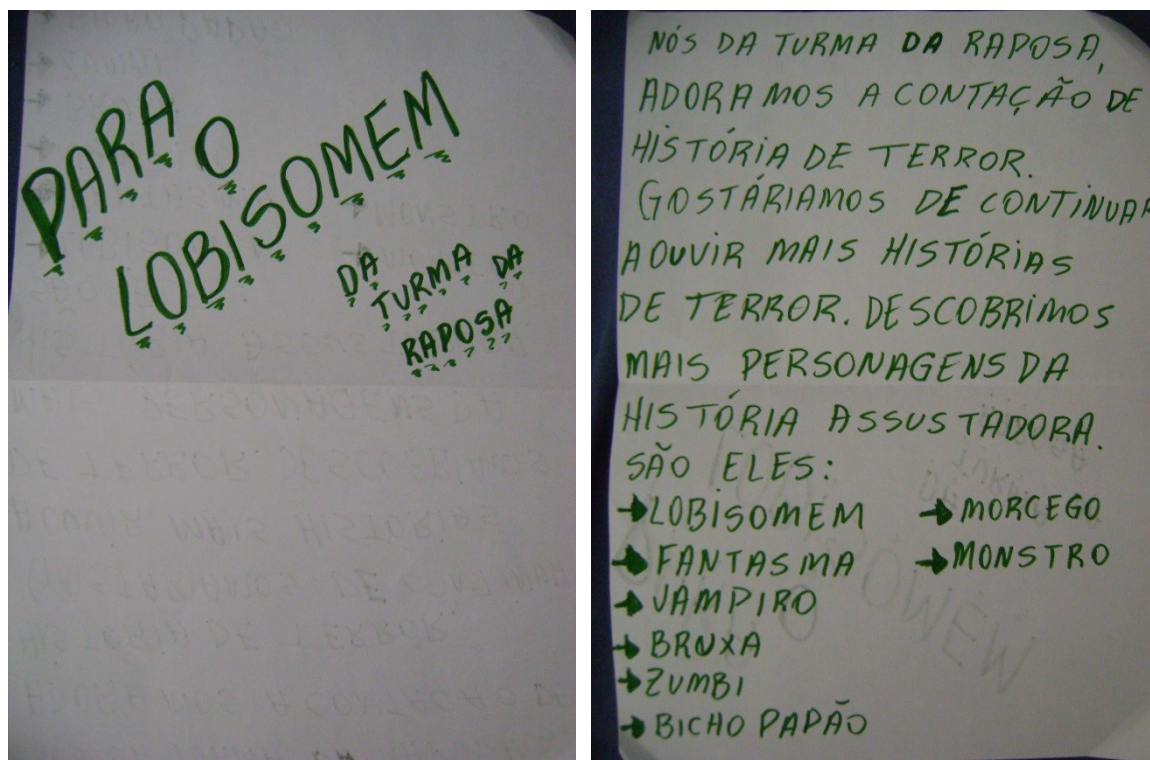 PARA O
LOBISOMEM
DA
TURMA DA
RAPOSA
NÓS DA TURMA DA RAPOSA,
ADORAMOS A CONTAÇÃO DE
HISTÓRIA DE TERROR.
GOSTÁRIAMOS DE CONTINUAR
A OUVIR MAIS HISTÓRIAS
DE TERROR. DESCOBRIMOS
MAIS PERSONAGENS DA
HISTÓRIA ASSUSTADORA.
SÃO ELES:
→LOBISOMEM →MORCEGO
→FANTASMA →MONSTRO
→VAMPIRO
→BRUXA
→ZUMBI
→BICHO PAPÃO